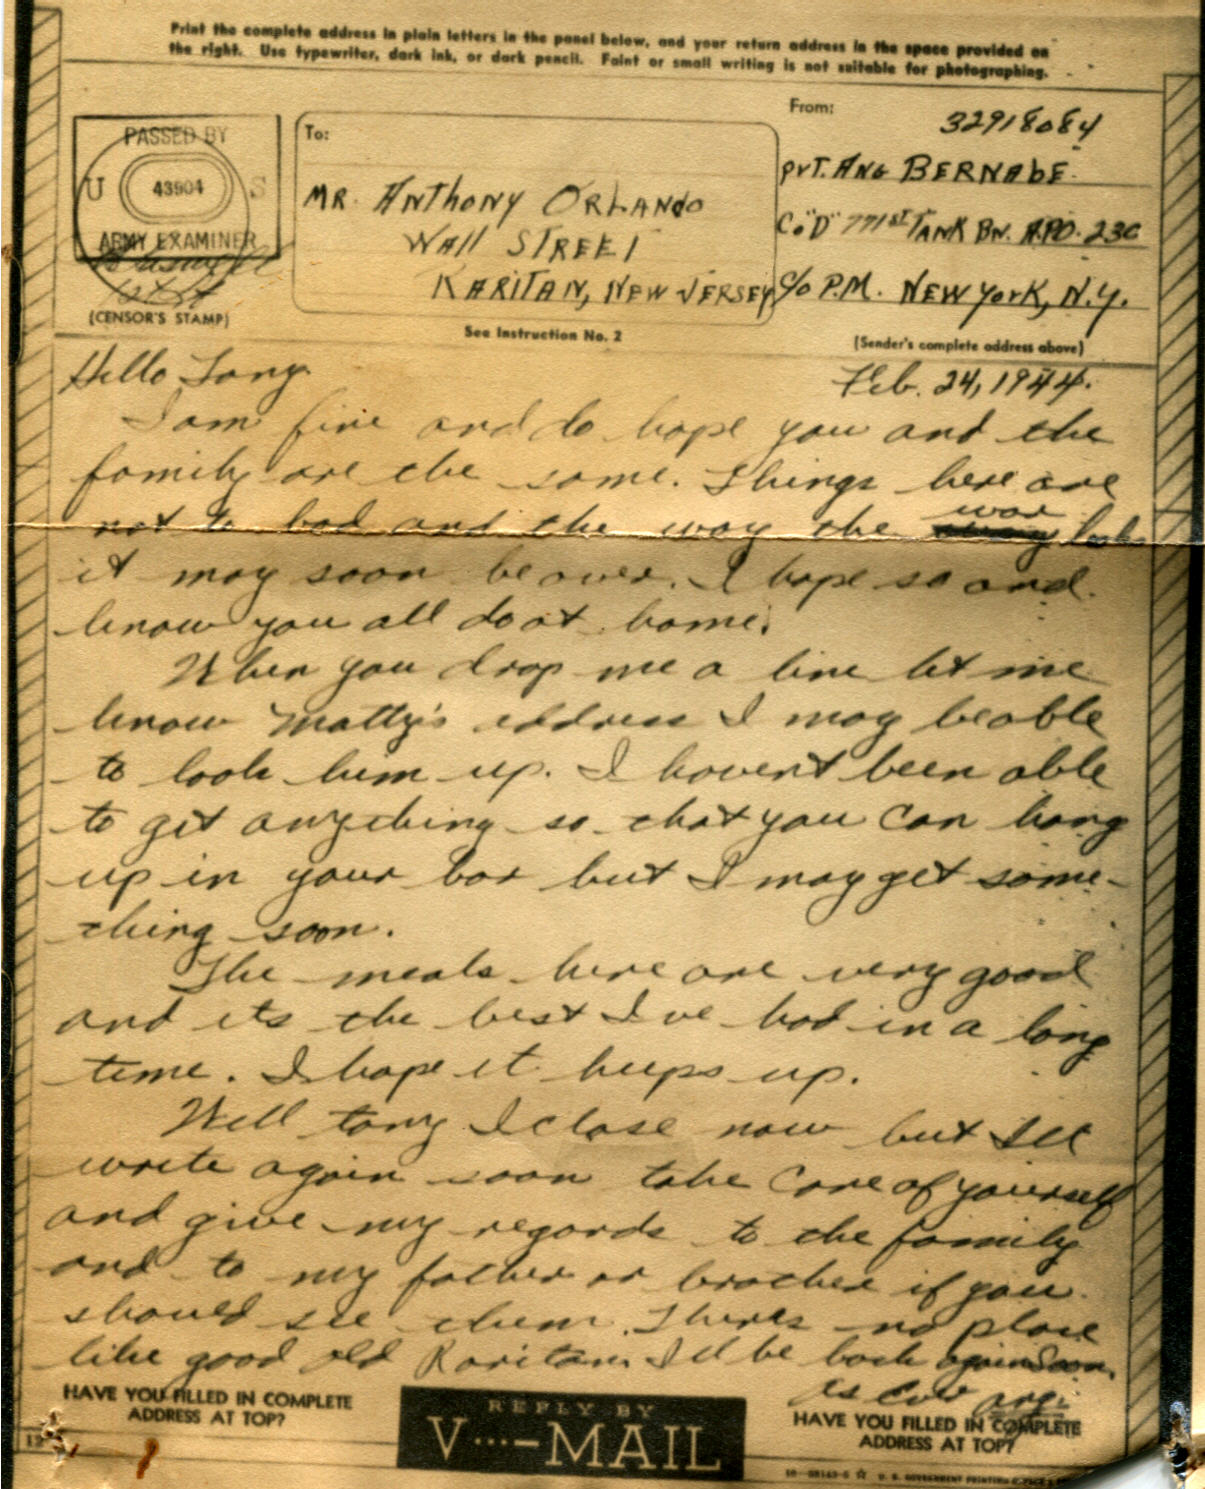 Print the complete address in plain letters in the panel below, and your return address in the space provided on
the right. Use typewriter, dark ink, or dark pencil. Faint or small writing is not suitable for photographing.
PASSED BY
U 43904 S
ARMY EXAMINER
(CENSOR'S STAMP)
To:
MR. ANTHONY ORLANDO
WALL STREET
RARITAN, NEW JERSEY
See Instruction No. 2
From:
32918084
PVT. ANG BERNABE
Co "D" 771ST TANK BN. A.P.O. 230
C/O P.M. NEW YORK, N.Y.
(Sender's complete address above)
Feb. 24, 1944.
Hello Tony
I am fine and do hope you and the
family are the same. Things here are
not to bad and the way the war looks
it may soon be over. I hope so and
know you all do at home.
When you drop me a line let me
know Matty's address I may be able
to look him up. I haven't been able
to get anything so that you can hang
up in your bar but I may get some-
thing soon.
The meals here are very good
and its the best I've had in a long
time. I hope it keeps up.
Well tony I close now but I'll
write again soon take care of yourself
and give my regards to the family
and to my father or brother if you
should see them. Theres no place
like good old Raritan. I'll be back again soon.
as ever ang.
HAVE YOU FILLED IN COMPLETE
ADDRESS AT TOP?
REPLY BY
V···—MAIL
HAVE YOU FILLED IN COMPLETE
ADDRESS AT TOP?